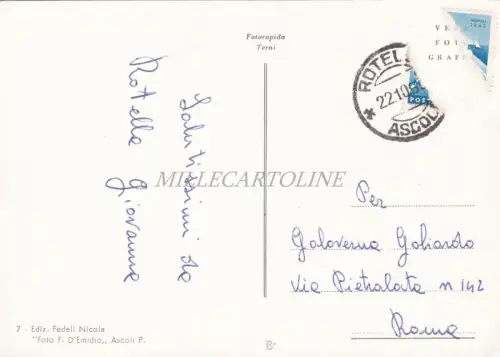 Fotorapida
Terni
VE
FOT
GRAF
ROTEL
22.10.5
ASCOL
POST
Salutissimi da
Rotella Giovanna
MILLECARTOLINE
Per
Galoverna Galiardo
Via Pietralata n 142
Roma
7 - Ediz. Fedeli Nicola
"Foto F. D'Emidio„ Ascoli P.